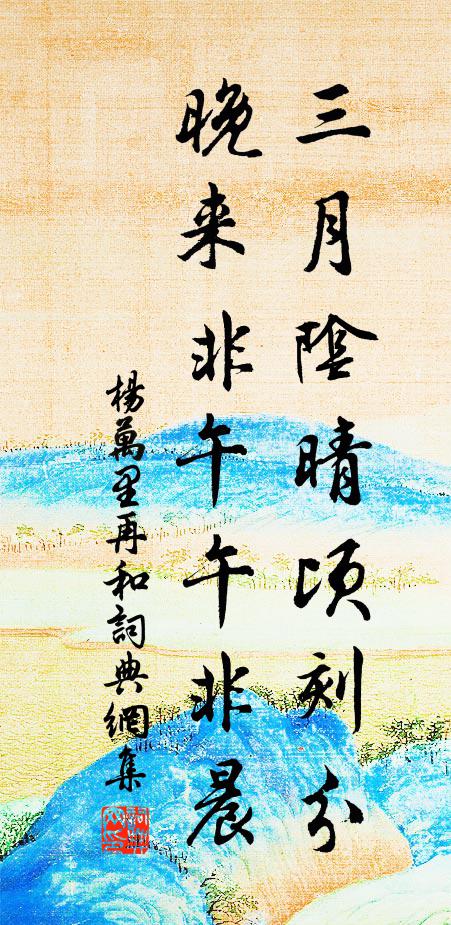 三月陰晴頃刻分
晚来非午午非晨
楊萬里再和詞典網集